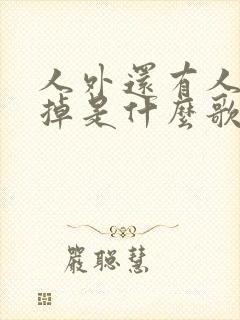 人外還有人
掉是什麼歌
嚴聰慧